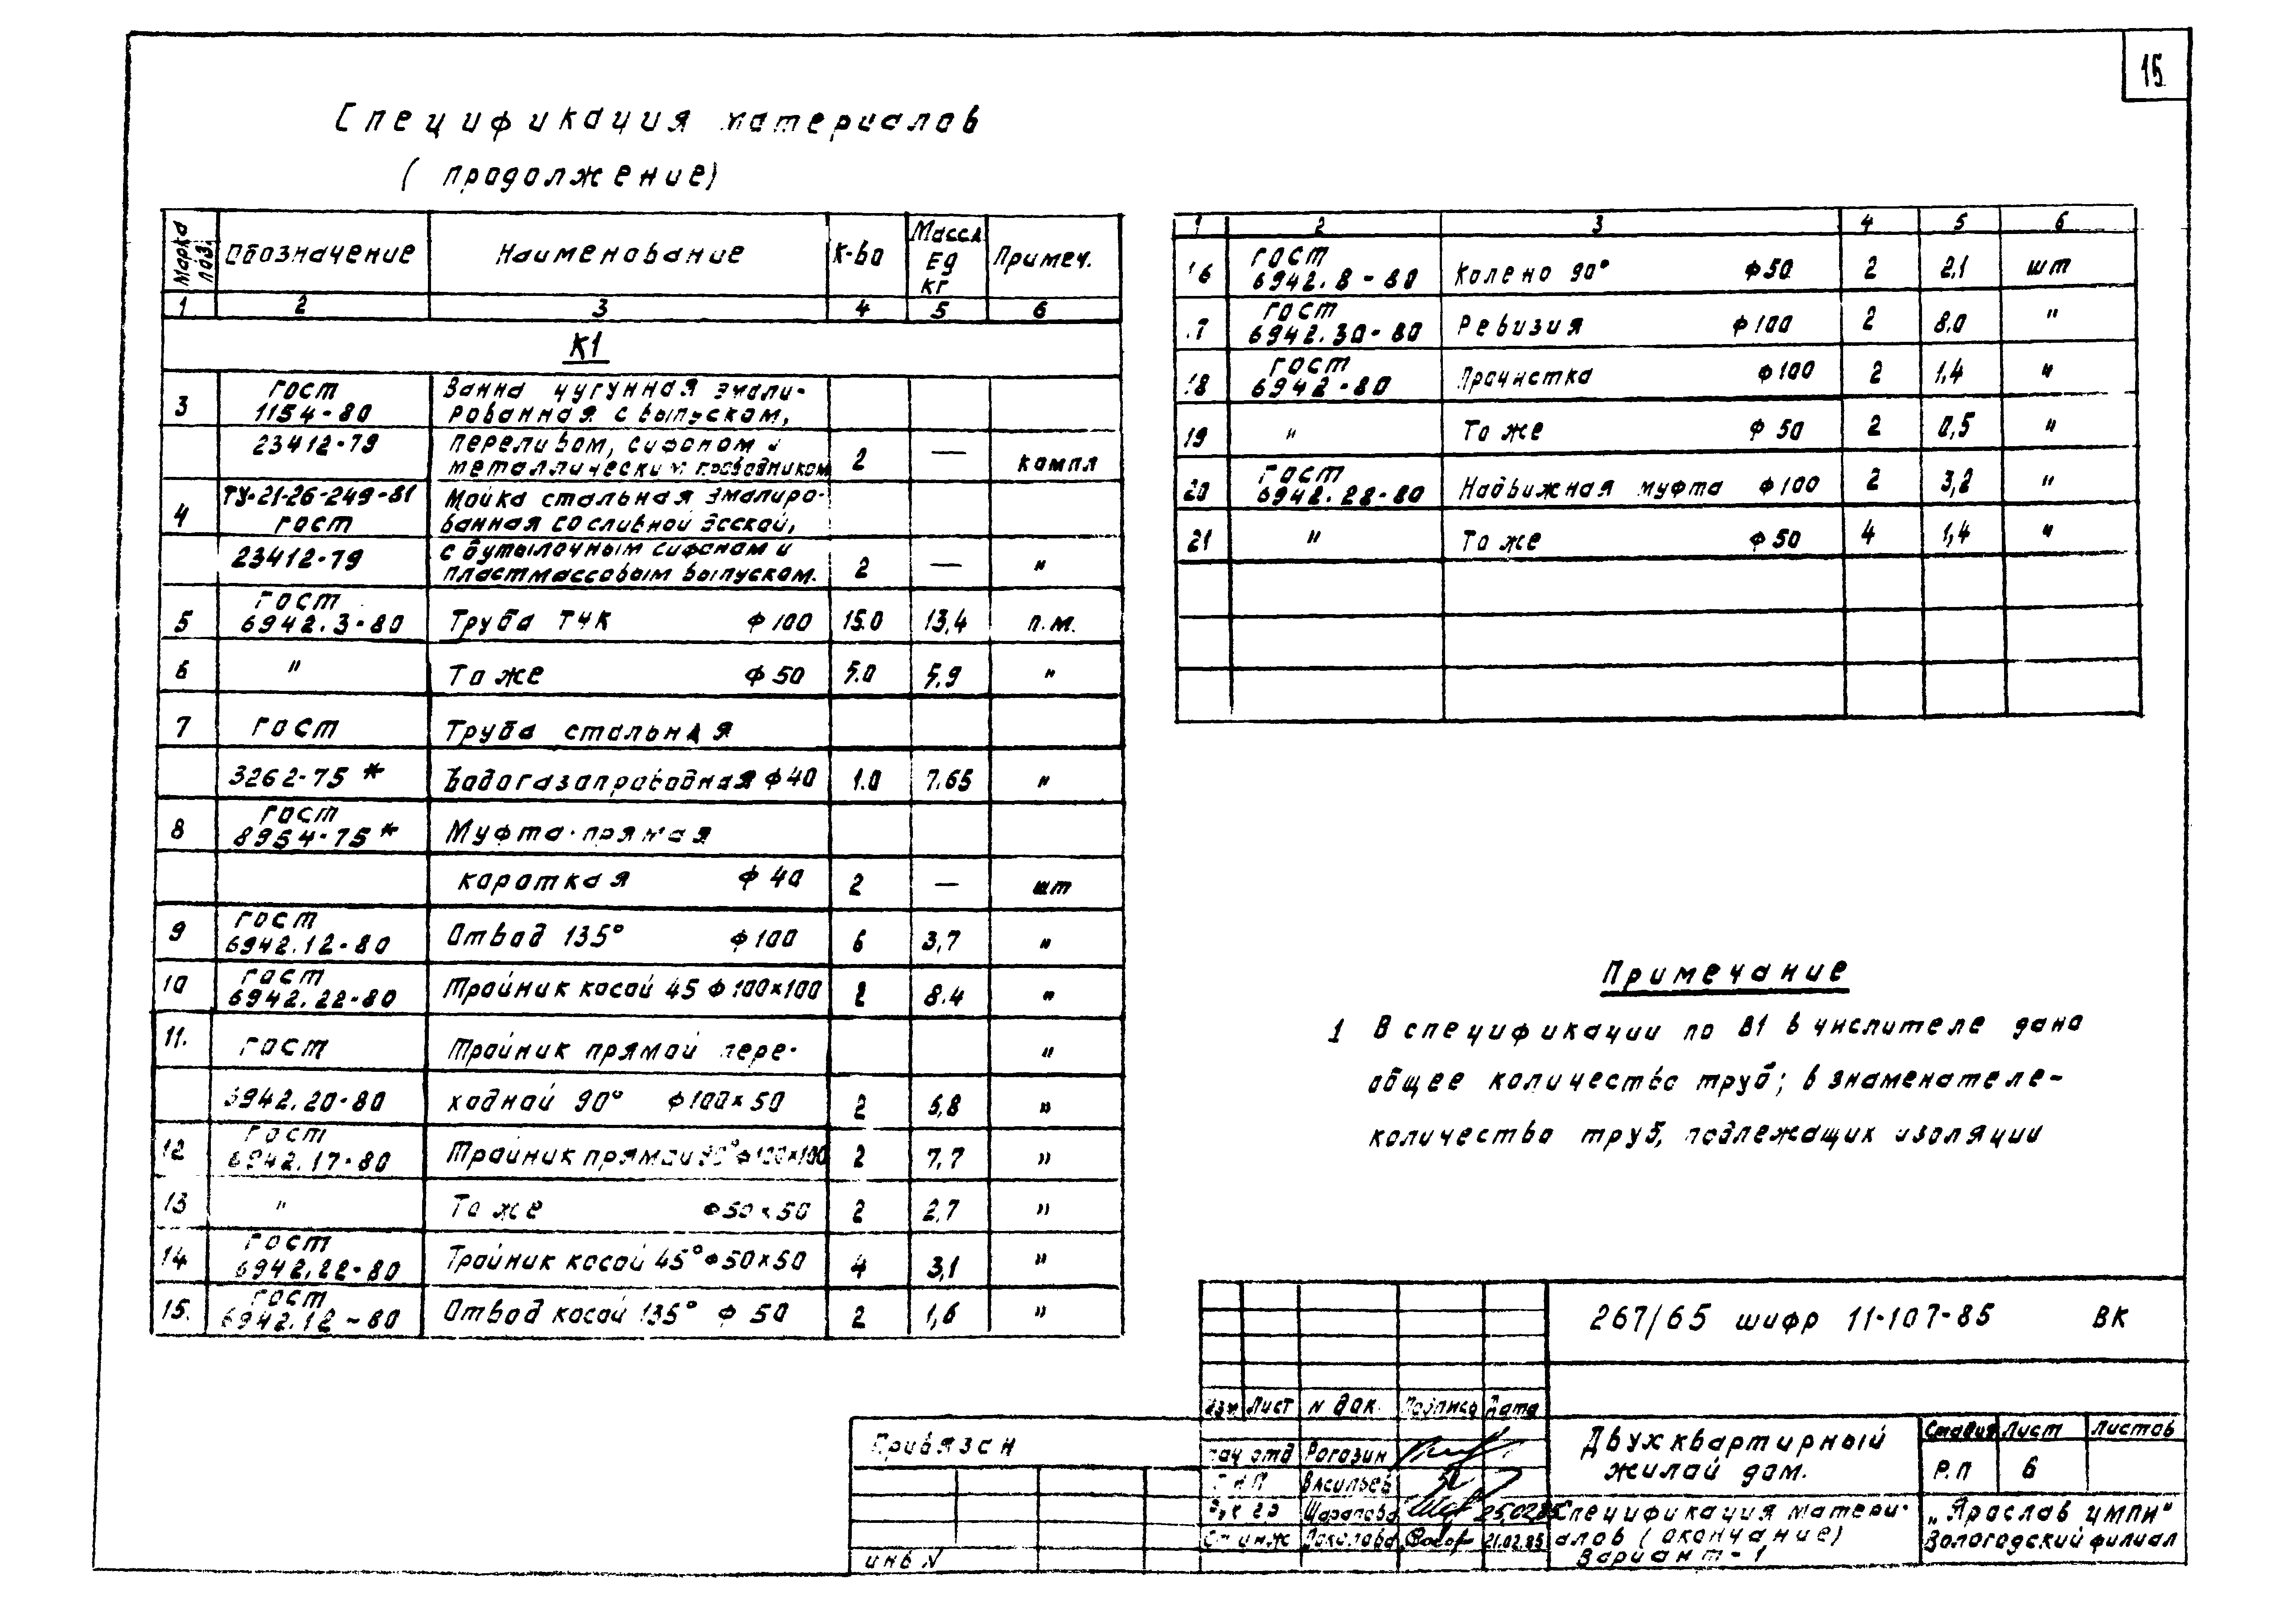 15
Спецификация материалов
(продолжение)
Марка поз. Обозначение Наименование К-во Масса Ед кг Примеч.
1 2 3 4 5 6
К1
3 ГОСТ 1154-80 Ванна чугунная эмали-
рованная с выпуском,
23412-79 переливом, сифоном и
металлическим проводником 2 — компл
4 ТУ-21-26-249-81 Мойка стальная эмалиро-
ГОСТ ванная со сливной доской,
23412-79 с бутылочным сифоном и
пластмассовым выпуском. 2 — "
5 ГОСТ 6942.3-80 Труба ТЧК ф100 15.0 13,4 п.м.
6 " То же ф50 5.0 5,9 "
7 ГОСТ Труба стальная
3262-75* водогазопроводная ф40 1.0 7.65 "
8 ГОСТ 8954-75* Муфта прямая
короткая ф40 2 — шт
9 ГОСТ 6942.12-80 Отвод 135° ф100 6 3,7 "
10 ГОСТ 6942.22-80 Тройник косой 45 ф100×100 2 8.4 "
11. ГОСТ Тройник прямой пере- "
6942.20-80 ходной 90° ф100×50 2 6,8 "
12 ГОСТ 6942.17-80 Тройник прямой 90° ф100×100 2 7,7 "
13 " То же ф50×50 2 2,7 "
14 ГОСТ 6942.22-80 Тройник косой 45° ф50×50 4 3,1 "
15. ГОСТ 6942.12-80 Отвод косой 135° ф50 2 1,6 "
1 2 3 4 5 6
16 ГОСТ 6942.8-80 Колено 90° ф50 2 2,1 шт
17 ГОСТ 6942.30-80 Ревизия ф100 2 8,0 "
18 ГОСТ 6942-80 Прочистка ф100 2 1,4 "
19 " То же ф50 2 0,5 "
20 ГОСТ 6942.28-80 Надвижная муфта ф100 2 3,2 "
21 " То же ф50 4 1,4 "
Примечание
1 В спецификации по В1 в числителе дано
общее количество труб; в знаменателе-
количество труб, подлежащих изоляции
267/65 шифр 11-107-85 ВК
Изм Лист N док. Подпись Дата
Привязан
Нач отд Рогозин
ГИП Васильев
Рук гр Шарапова 25.02.85
Ст инж 21.02.85
инв N
Двухквартирный
жилой дом.
Стадия Лист Листов
Р.П 6
Спецификация матери-
алов (окончание)
Вариант-1
„Ярослав ЦМПИ"
Вологодский филиал